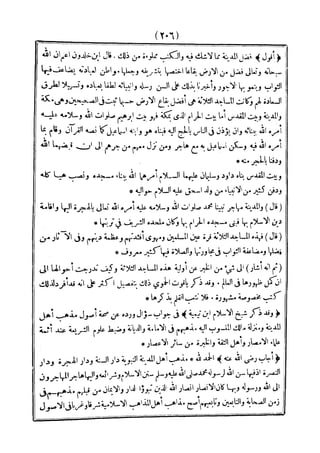 (٢٠٦)
﴿أقول﴾ فضل المدينة مما لا شك فيه والكتب مملوءة من ذلك . قال ابن خلدون اعلم ان الله
سبحانه وتعالى فضل من الارض بقاعا اختصها بتشريفه وجعلها مواطن لعبادته يضاعف فيها
الثواب وينمو بها الاجور وأخبرنا بذلك على ألسن رسله وأنبيائه لطفا بعباده وتسهيلا لطرق
السعادة لهم وكانت المساجد الثلاثة هي أفضل بقاع الارض حسبما ثبت في الصحيحين وهي مكة
والمدينة وبيت المقدس أما بيت الحرام الذي بمكة فهو بيت ابرهيم صلوات الله وسلامه عليه
أمره الله ببنائه وان يؤذن في الناس بالحج اليه فبناه هو وابنه اسمعيل كما نصه القرآن وقام بما
أمره الله فيه وسكن اسمعيل به مع هاجر ومن نزل معهم من جرهم الى ان قبضهما الله
ودفنا بالحجر منه *
وبيت المقدس بناه داود وسليمان عليهما السلام أمرهما الله ببناء مسجده ونصب هياكله
ودفن كثير من الانبياء من ولد اسحق عليه السلام حواليه *
(قال) والمدينة مهاجر نبينا محمد صلوات الله وسلامه عليه أمره الله تعالى بالهجرة اليها واقامة
دين الاسلام بها فبنى مسجده الحرام بها وكان ملحده الشريف في تربتها *
(قال) فهذه المساجد الثلاثة قرة عين المسلمين ومهوى أفئدتهم وعظمة دينهم وفي الآثار من
فضلها ومضاعفة الثواب في مجاورتها والصلاة فيها كثير معروف *
(ثم انه أشار) الى شيء من الخبر عن أولية هذه المساجد الثلاثة وكيف تدرجت أحوالها الى
ان كمل ظهورها في العالم . وقد ذكر ياقوت الحموي ذلك بتفصيل أكثر على انه قد أفرد لذلك
كتب مخصوصة مشهورة . فلا نتعب القلم بذكرها *
﴿وقد ذكر شيخ الاسلام ابن تيمية﴾ في جواب سؤال ورده عن صحة أصول مذهب أهل
المدينة ومنزلة مالك المنسوب اليه مذهبهم في الامامة والديانة وضبط علوم الشريعة عند أئمة
علماء الامصار وأهل الثقة والخبرة من سائر الاعصار *
﴿أجاب رضي الله عنه﴾ الحمد لله * مذهب أهل المدينة النبوية دار السنة ودار الهجرة ودار
النصرة اذ فيها سن الله لرسوله محمد صلى الله عليه وسلم سنن الاسلام وشرائعه واليها هاجر المهاجرون
الى الله ورسوله وبها كان الانصار انصار الله الذين تبوؤا الدار والايمان من قبلهم مذهبهم في
زمن الصحابة والتابعين وتابعيهم أصح مذاهب أهل المدائن الاسلامية شرقا وغربا في الاصول